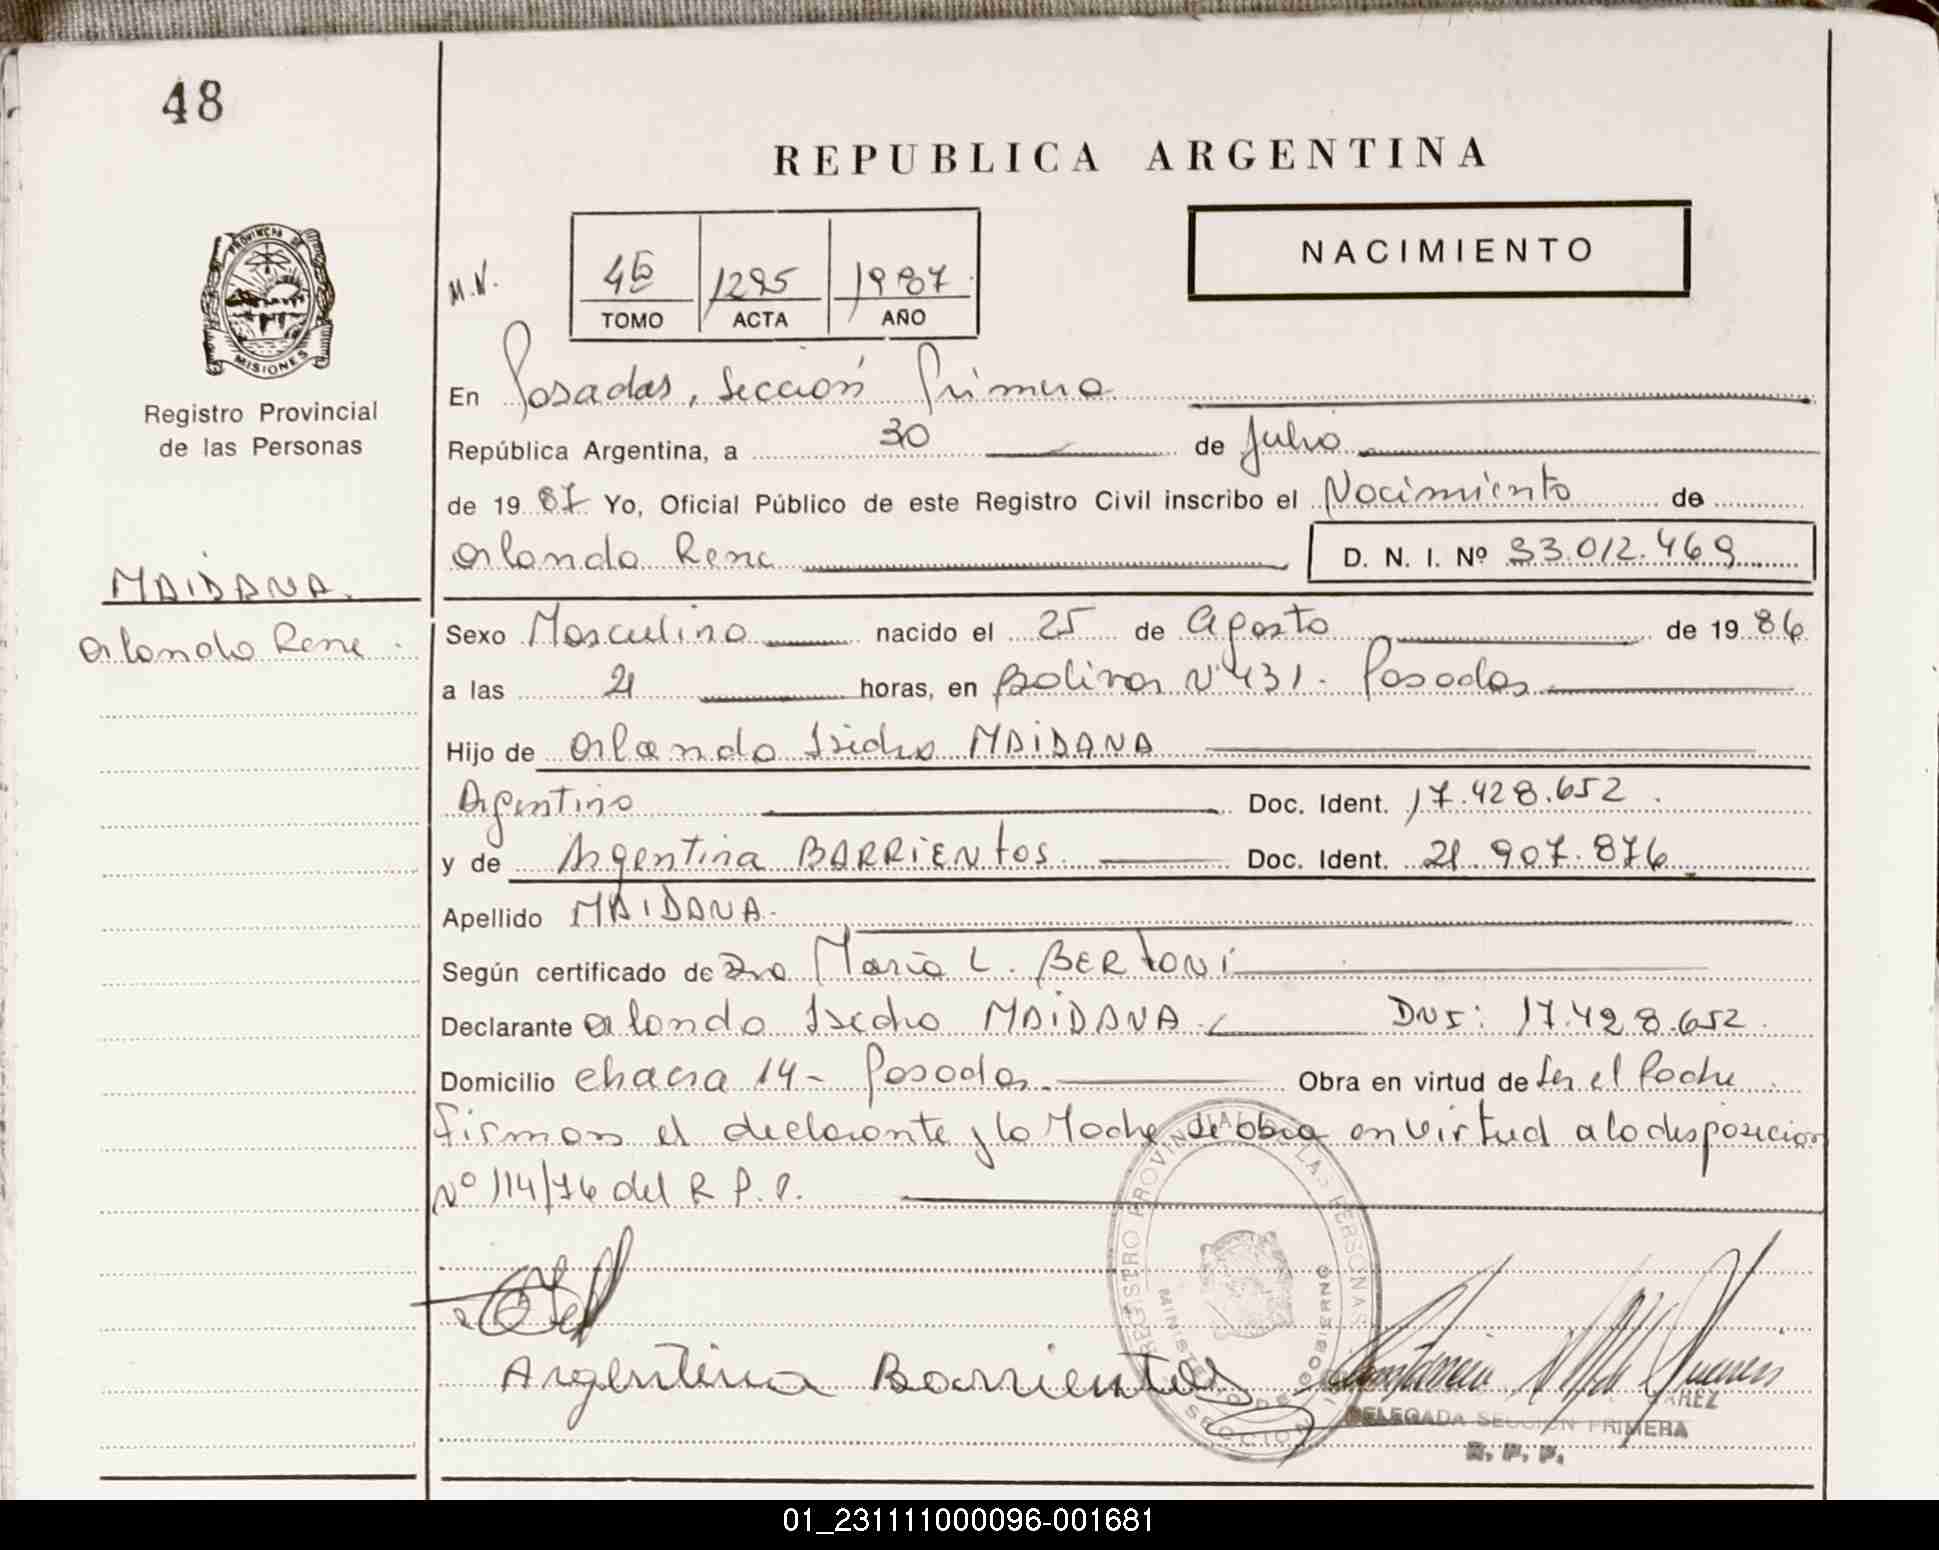 48
REPUBLICA ARGENTINA
NACIMIENTO
M.N.
4to 1295 1987
TOMO ACTA AÑO
PROVINCIA DE
MISIONES
Registro Provincial
de las Personas
MAIDANA.
Orlando Rene.
En Posadas, Sección Primera
República Argentina, a 30 de Julio
de 1987 Yo, Oficial Público de este Registro Civil inscribo el Nacimiento de
Orlando Rene D. N. I. Nº 33.012.469
Sexo Masculino nacido el 25 de Agosto de 1986
a las 21 horas, en Bolivar Nº 431. Posadas
Hijo de Orlando Isidro MAIDANA
Argentino Doc. Ident. 17.428.652.
y de Argentina BARRIENtos Doc. Ident. 21.907.876
Apellido MAIDANA.
Según certificado de Dra Maria L. BERtONi
Declarante Orlando Isidro MAIDANA. DNI: 17.428.652.
Domicilio chacra 14- Posadas. Obra en virtud de Ser el Padre
firman el declarante y la Madre Se obra en virtud a la disposicion
Nº 114/76 del R.P.P.
Argentina Barrientos
REGISTRO PROVINCIAL DE LAS PERSONAS
MINISTERIO DE GOBIERNO
SECCION
DELEGADA SECCION PRIMERA
R. P. P.
01_231111000096-001681